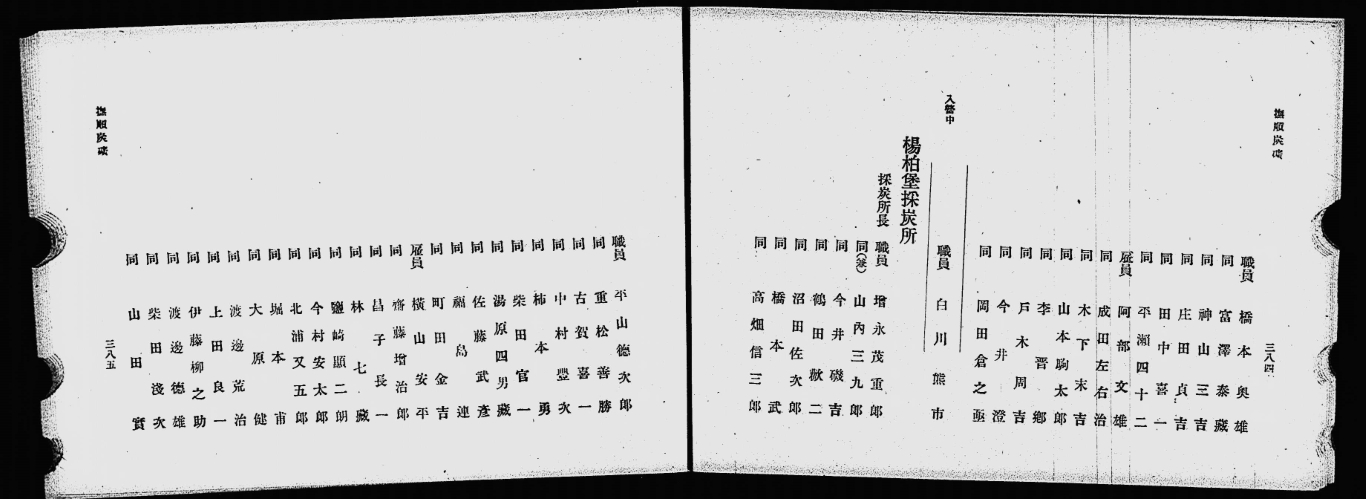 撫順炭礦
三八四
職員 橋本奥雄
同 富澤泰藏
同 神山三吉
同 庄田貞吉
同 田中喜一
同 平瀬四十二
雇員 阿部文雄
同 成田左右治
同 木下末吉
同 山本駒太郎
同 李晋鄉
同 戸木周吉
同 今井澄
同 岡田倉之亟
入營中
職員 白川熊市
楊柏堡採炭所
採炭所長 職員 增永茂重郎
同 山內三九郎
同 今井磯吉
同 鶴田歡二
同 沼田佐次郎
同 橋本武
同 高畑信三郎
職員 平山德次郎
同 重松善勝
同 古賀喜一
同 中村豐次
同 柿本勇
同 柴田官一
同 湯原四男藏
同 佐藤武彥
同 福島連
同 町田金吉
雇員 橫山安平
同 齋藤增治郎
同 昌子長一
同 林七藏
同 鹽崎顯二朗
同 今村安太郎
同 北浦又五郎
同 堀本甫
同 大原健
同 渡邊荒治
同 上田良一
同 伊藤柳之助
同 渡邊德雄
同 柴田淺次
同 山田實
三八五
撫順炭礦